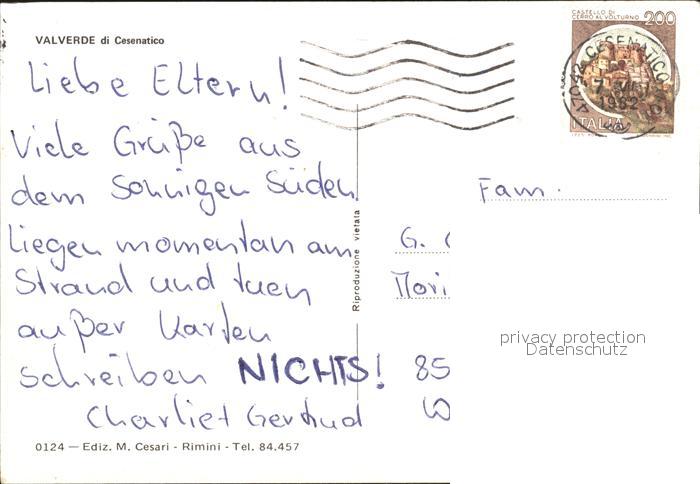 VALVERDE di Cesenatico
CASTELLO DI
CERRO AL VOLTURNO 200
CESENATICO
1982
ITALIA
Liebe Eltern!
Viele Grüße aus
dem Sonnigen Süden.
Liegen momentan am
Strand und tuen
außer Karten
schreiben NICHTS!
Charlie + Gertrud
Riproduzione vietata
Fam.
G.
Mori
85
W
privacy protection
Datenschutz
0124 — Ediz. M. Cesari - Rimini - Tel. 84.457